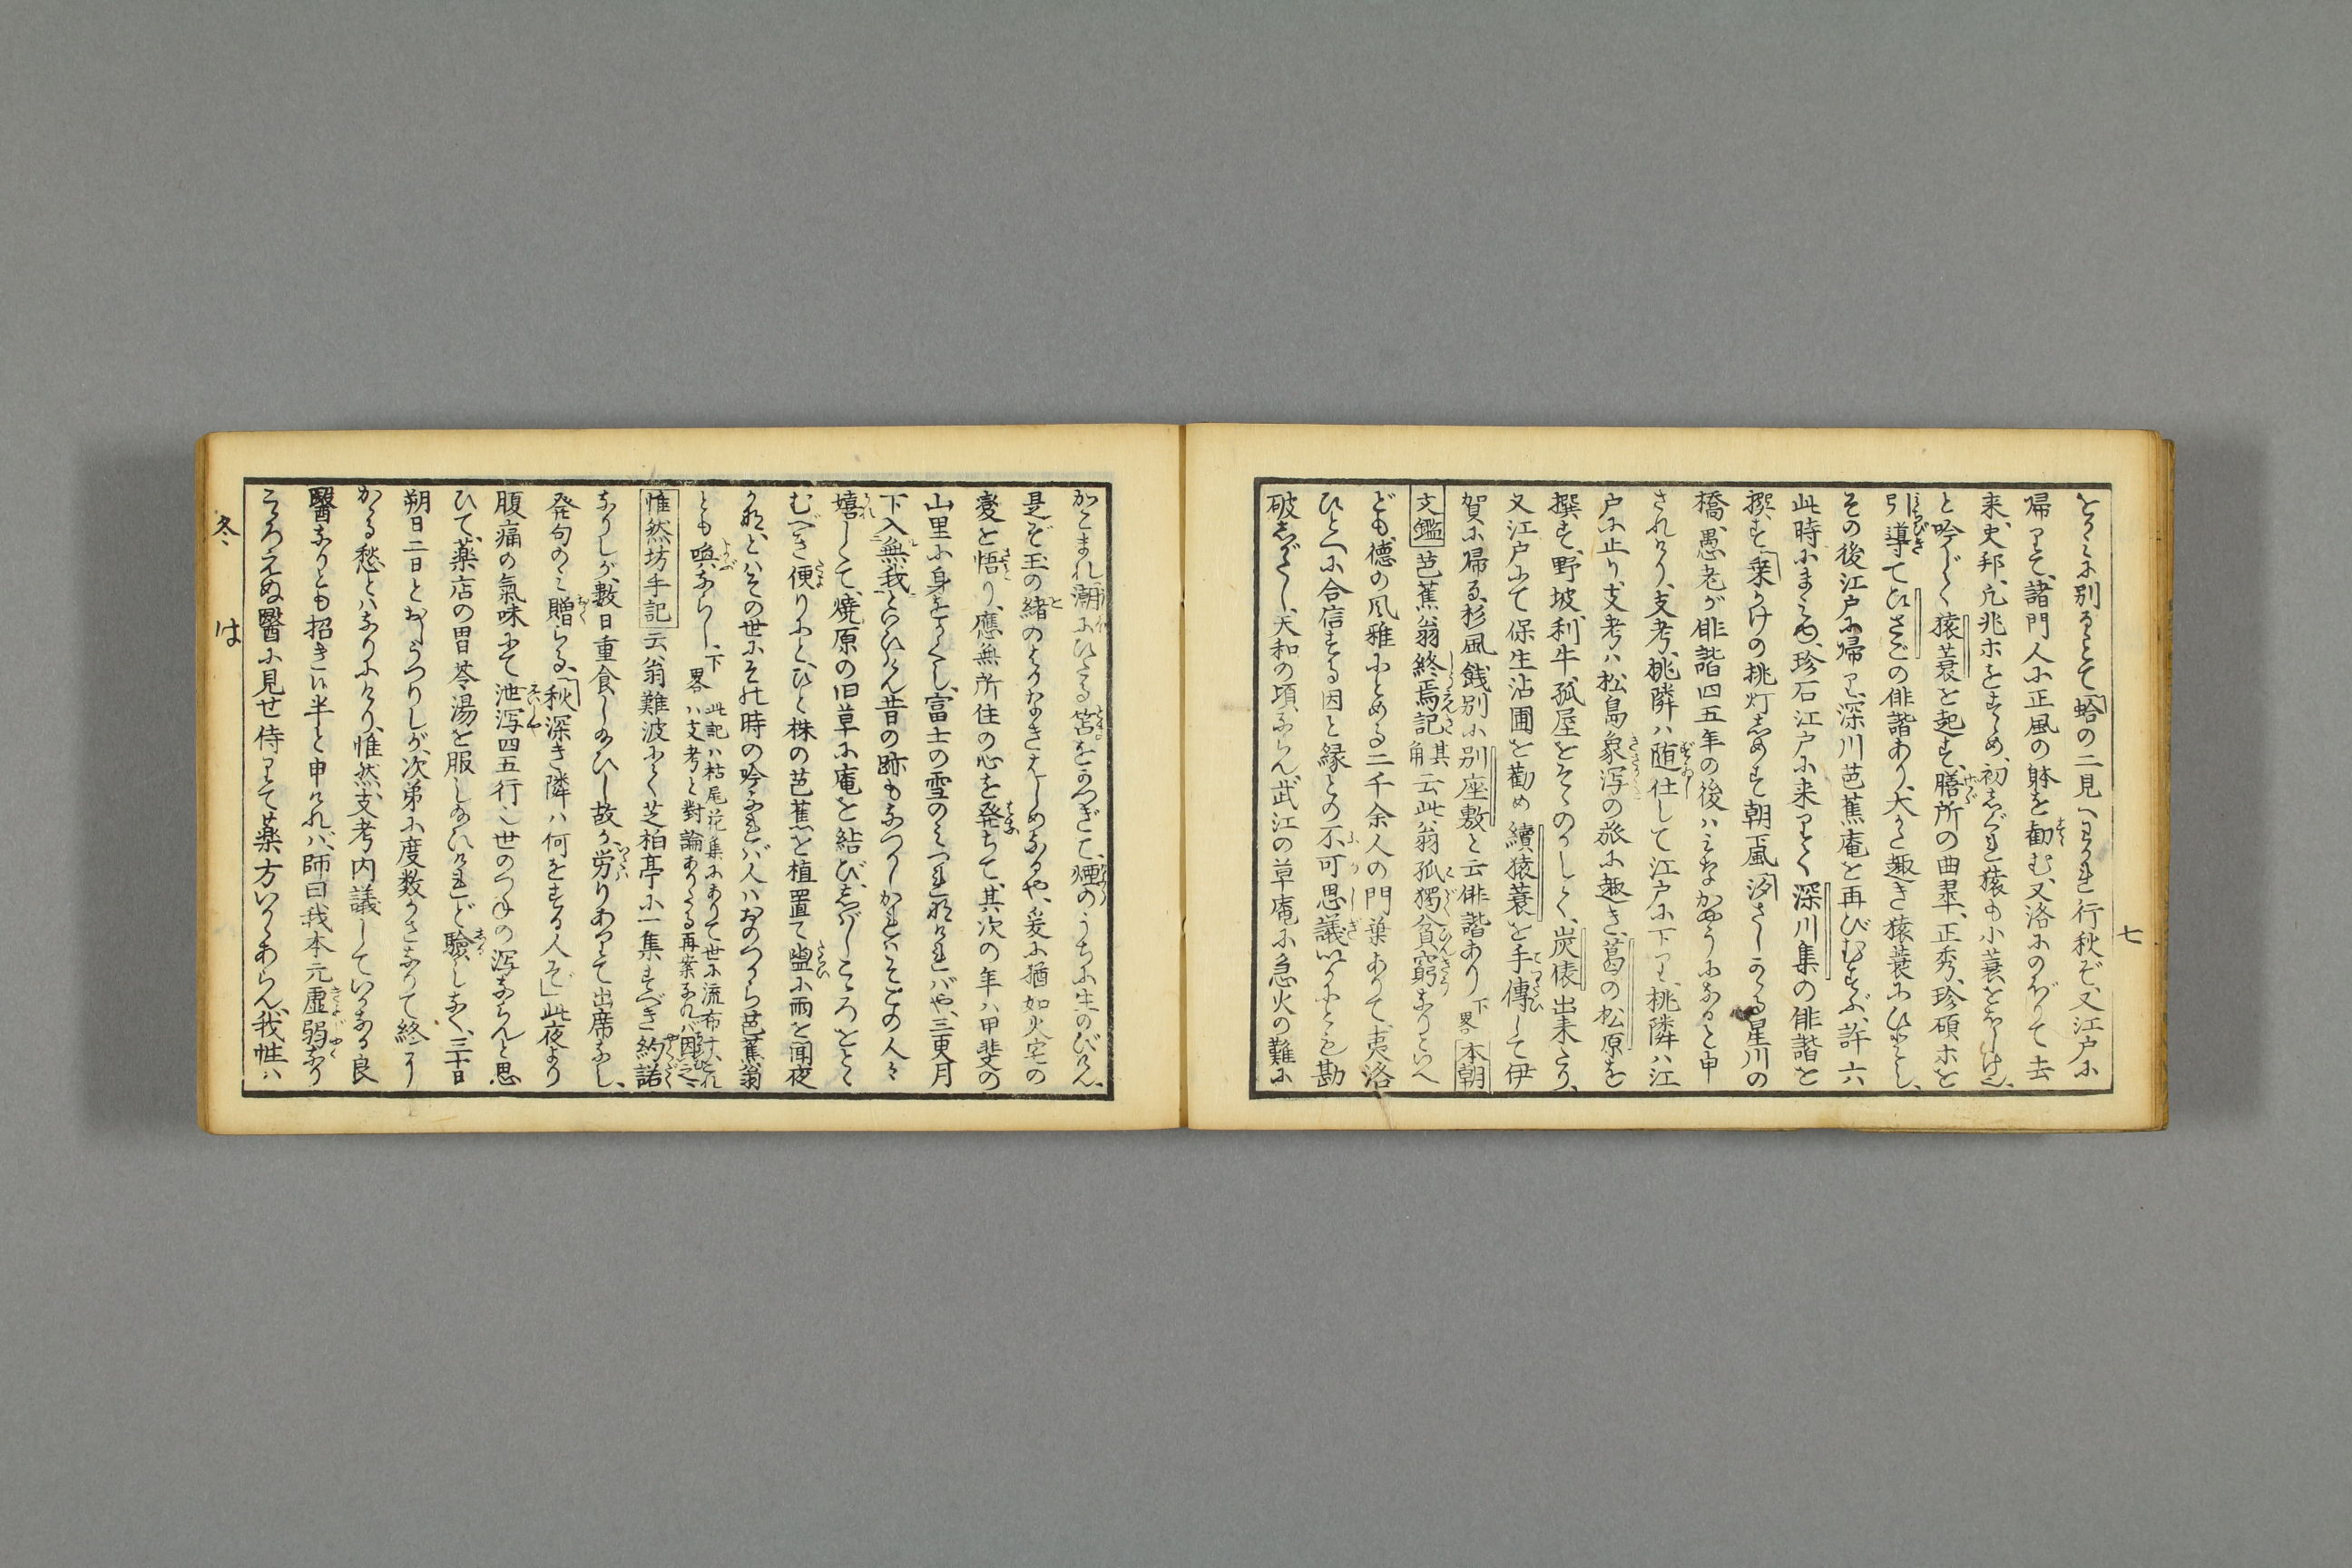 七
とくくに別るとて蛤の二見へわかれ行秋ぞ、又江戸に
帰りて、諸門人に正風の躰を勧む、又洛にのぼりて去
来、史邦、凡兆ホをすゝめ、初しぐれ猿も小蓑をほしげ也、
と吟じて猿蓑を起す、膳所の曲翠、正秀、珍碩ホを
引導てひさごの俳諧あり、大かた趣き猿蓑にひとし、
その後江戸に帰り、深川芭蕉庵を再びむすぶ、許六
此時にまみゑ、珍石江戸に来りて深川集の俳諧を
撰す、乗かけの桃灯しめす朝風、汐さしかゝる星川の
橋、愚老が俳諧四五年の後ハみなかやうになると申
されけり、支考、桃隣ハ随仕して江戸に下り、桃隣ハ江
戸に止り、支考ハ松島象潟の旅に趣き、葛の松原を
撰す、野坡、利牛、孤屋をそゝのかして、炭俵出来たり、
又江戸にて保生沾圃を勧め續猿蓑を手傳して伊
賀に帰る、杉風餞別に別座敷と云俳諧あり下畧本朝
文鑑芭蕉翁終焉記其角云此翁孤獨貧窮なりといへ
ども、徳の風雅にとめる二千余人の門葉ありて、夷洛
ひとへに合信する因と縁との不可思議いかにとも勘
破しがたし、天和の頃ならん、武江の草庵に急火の難に
かこまれ潮にひたる笘をかつぎて、煙のうちに生のびけん、
是ぞ玉の緒のはかなきはじめなるや、爰に猶如火宅の
変を悟り、應無所住の心を発ちて、其次の年ハ甲斐の
山里に身をかくし、富士の雪のミつれなければや、三更月
下入無我といひけん昔の跡もなつかしかればそこの人々
嬉しくて、焼原の旧草に庵を結び、しばしこゝろをとゞ
むべき便りにと、ひと株の芭蕉を植置て盥に雨を聞夜
かな、とハその世にその時の吟なれバ人ハおのつから芭蕉翁
とも喚ならし、下畧此記ハ枯尾花集にありて世に流布すされハ支考と對論ありたる再案なれバ因之
惟然坊手記云翁難波にて芝柏亭に一集すべき約諾
ありしが、數日重食し給ひし故か労りありて出席なし、
発句のミ贈らる、秋深き隣ハ何をする人ぞ」此夜より
腹痛の氣味にて泄瀉四五行也世のつねの瀉ならんと思
ひて、藥店の胃苓湯を服し給ひけれど験しなく、三十日
朔日二日とおしうつりしが、次第に度数かさなりて終に
かゝる愁とハなりにけり、惟然、支考内議していかなる良
醫なりとも招き候半と申ければ、師曰我本元虚弱なり
こゝろえぬ醫に見せ侍りて藥方いかゞあらん、我性ハ
冬、
は